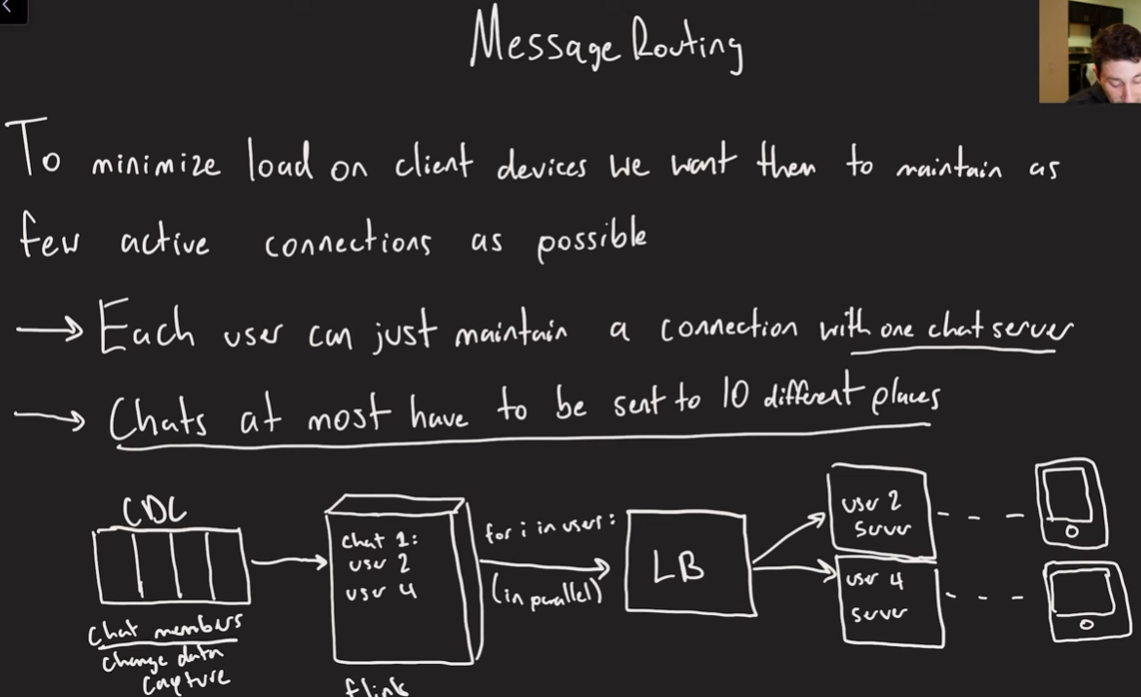 Message Routing
To minimize load on client devices we want them to maintain as
few active connections as possible
→ Each user can just maintain a connection with one chat server
→ Chats at most have to be sent to 10 different places
CDC
chat members
change data
capture
chat 1:
user 2
user 4
flink
for i in user:
(in parallel)
LB
user 2
server
user 4
server